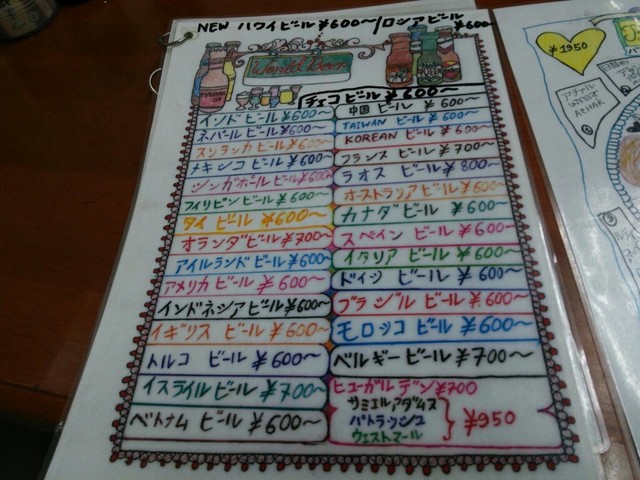 NEW ハワイビール¥600〜/ロシアビール
¥600〜
World Beer
チェコビール¥600〜
インドビール¥600〜
ネパールビール¥600〜
スリランカビール¥600〜
メキシコビール¥600〜
シンガポールビール¥600〜
フィリピンビール¥600〜
タイビール¥600〜
オランダビール¥700〜
アイルランドビール¥600〜
アメリカビール¥600〜
インドネシアビール¥600〜
イギリスビール¥600〜
トルコビール¥600〜
イスライルビール¥700〜
ベトナムビール¥600〜
中国ビール¥600〜
TAIWANビール¥600〜
KOREANビール¥600〜
フランスビール¥700〜
ラオスビール¥800〜
オーストラリアビール¥600〜
カナダビール¥600〜
スペインビール¥600〜
イタリアビール¥600〜
ドイツビール¥600〜
ブラジルビール¥600〜
モロッコビール¥600〜
ベルギービール¥700〜
ヒューガルデン¥700
サミエルアダムス
パトラッシュ
ウェストマール
¥950
¥1950
アチャール
ACHAR